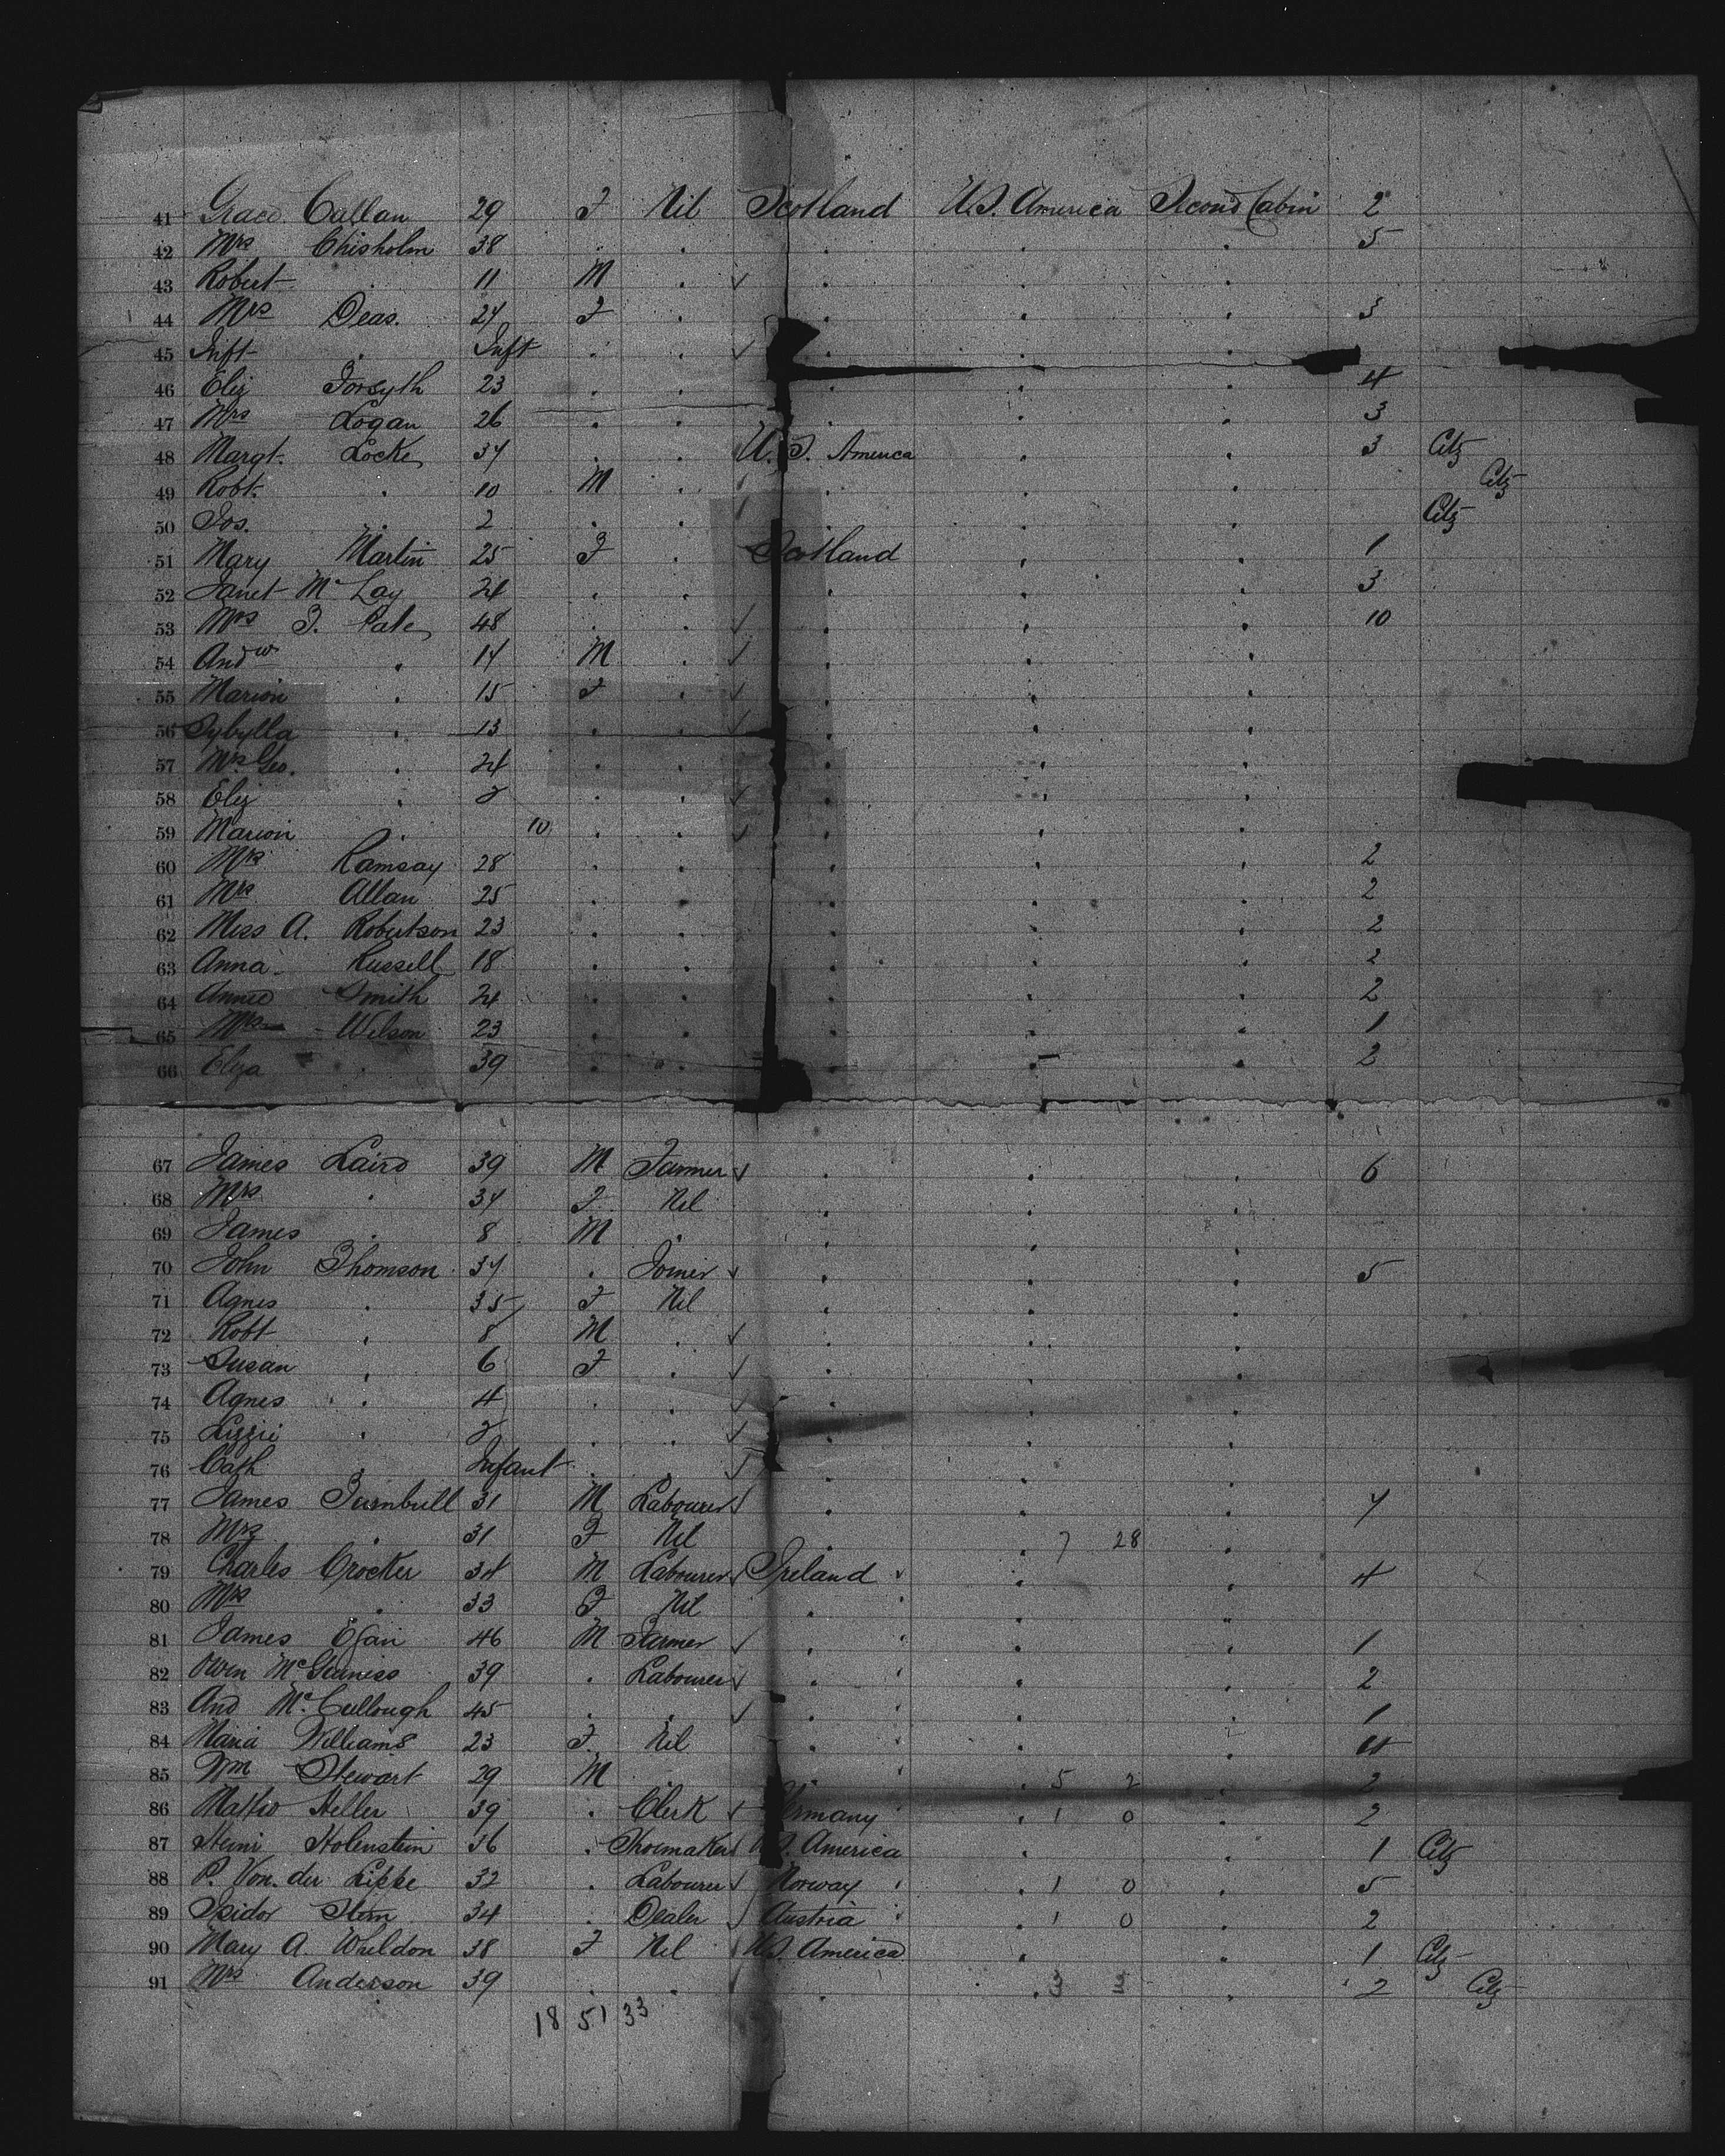 41 Grace Callan 29 F Nil Scotland U.S. America Second Cabin 2
42 Mrs Chisholm 38 . . . . . 5
43 Robert . 11 M . ✓ . . .
44 Mrs Deas. 24 F . . . . 3
45 Inft . Inft . . ✓ . . .
46 Eliz Forsyth 23 . . . . . 4
47 Mrs Logan 26 . . . . . 3
48 Margt. Locke 34 . . U.S. America . . 3 Citz
49 Robt. . 10 M . . . . Citz
50 Jos. . 2 . . . . . Citz
51 Mary Martin 25 F . Scotland . . 1
52 Janet McLay 24 . . . . . 3
53 Mrs J. Pate 48 . . ✓ . . . 10
54 Andw . 14 M . ✓ . . .
55 Marion . 15 F . ✓ . . .
56 Sybylla . 13 . . ✓ . . .
57 Mrs Geo. . 24 . . . . .
58 Eliz . 2 . . ✓ . . .
59 Marion . 10 . . ✓ . . .
60 Mrs Ramsay 28 . . . . . 2
61 Mrs Allan 25 . . . . . 2
62 Miss A. Robertson 23 . . . . . 2
63 Anna Russell 18 . . . . . 2
64 Annie Smith 24 . . . . . 2
65 Mrs Wilson 23 . . . . . 1
66 Eliza . 39 . . . . . 2
67 James Laird 39 M Farmer ✓ . . . 6
68 Mrs . 34 F Nil . . .
69 James . 8 M . . . .
70 John Thomson 34 . Joiner ✓ . . . 5
71 Agnes . 35 F Nil . . .
72 Robt . 8 M . ✓ . . .
73 Susan . 6 F . ✓ . . .
74 Agnes . 4 . . ✓ . . .
75 Lizzie . 2 . . ✓ . . .
76 Cath . Infant . . ✓ . . .
77 James Turnbull 31 M Labourer ✓ . . . 7
78 Mrs . 31 F Nil . . 7 28 .
79 Charles Crocker 34 M Labourer ✓ Ireland . . 4
80 Mrs . 33 F Nil . . .
81 James Egan 46 M Farmer ✓ . . . 1
82 Owen McGuiness 39 . Labourer ✓ . . . 2
83 And McCullough 45 . . ✓ . . . 1
84 Maria Williams 23 F Nil . . . 4
85 Wm Stewart 29 M . . 5 2 . 2
86 Heller 39 . Clerk ✓ Germany . 1 0 . 2
87 Henri Holenstein 36 . Shoemaker ✓ U.S. America . . 1 Citz
88 P. Von. der Lippe 32 . Labourer ✓ Norway . 1 0 . 5
89 Isidor Stern 34 . Dealer ✓ Austria . 1 0 . 2
90 Mary A. Wheldon 38 F Nil U.S. America . . 1 Citz
91 Mrs Anderson 39 . . . . 3 3 . 2 Citz
18 51 33